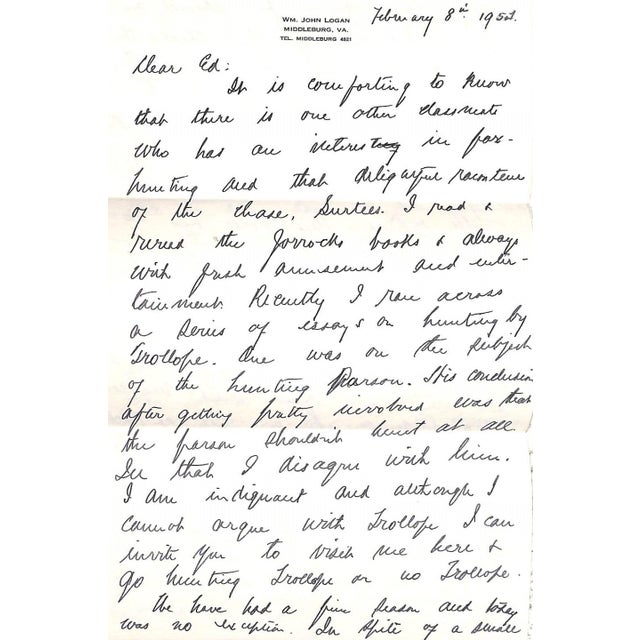 WM. JOHN LOGAN
MIDDLEBURG, VA.
TEL. MIDDLEBURG 4821
February 8th 195
Dear Ed:
It is comforting to know
that there is one other classmate
who has an interest in fox-
hunting and that delightful raconteur
of the chase, Surtees. I read &
reread the Jorrocks books & always
with fresh amusement and enter-
tainment. Recently I ran across
a series of essays on hunting by
Trollope. One was on the subject
of the hunting Parson. His conclusion
after getting pretty involved was that
the parson shouldn't hunt at all.
In that I disagree with him.
I am indignant and although I
cannot argue with Trollope I can
invite you to visit me here &
go hunting Trollope or no Trollope.
We have had a fine season and today
was no exception. In spite of a small